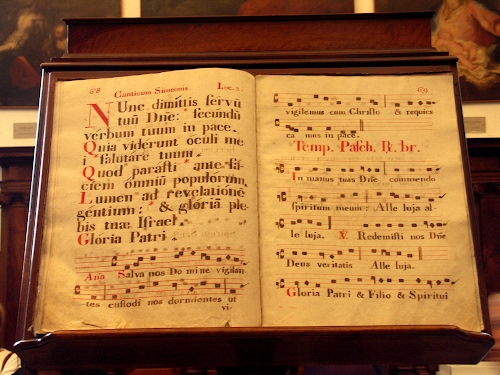 68 Canticum Simeonis. Luc. 2.
NUnc dimíttis servū
tuū Dñe: * secundū
verbum tuum in pace.
Quia viderunt oculi me
i * salutáre tuum.
Quod parásti * ante fá-
ciem ómniū populorum.
Lumen ad revelationē
gentium: * & glóriā ple-
bis tuæ Israel.
Gloria Patri.
Aña Salva nos Domine vigilan
tes custodi nos dormientes ut
vi-
69
vigilemus cum Christo & requies
ca mus in pace.
Temp. Pasch. R. br.
In manus tuas Dñe commendo
spiritum meum: Alle luja al-
le luja. V. Redemisti nos Dñe
Deus veritatis Alle luja.
Gloria Patri & Filio & Spiritui